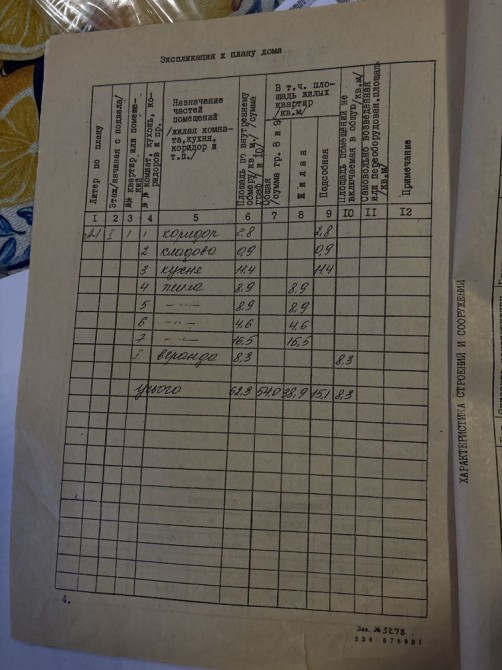 Экспликация к плану дома
Литер по плану
Этаж/начиная с подвала/
№№ квартир или помеще-
ний
№ № комнат, кухонь, ко-
ридоров и пр.
Назначение
частей
помещений
/жилая комна-
та, кухня,
коридор и
т.п./
Площадь по внутреннему
обмеру/кв.м./ /сумма
граф 7 и 10/
Общая
/сумма гр. 8 и 9/
В т.ч. пло-
щадь жилых
квартир
/кв.м/
Жилая
Подсобная
Площадь помещений не
включаемая в общую/кв.м/
Самовольно возведенная
или переоборудован.площадь
/кв.м/
Примечание
1 2 3 4 5 6 7 8 9 10 11 12
I 1 1 коридор 2,8 2,8
2 кладова 0,9 0,9
3 кухне 11.4 11.4
4 жила 8,9 8,9
5 -"- 8,9 8,9
6 -"- 4,6 4,6
7 -"- 16,5 16,5
I веранда 8,3 8,3
Усього 62,3 54,0 38,9 15,1 8,3
4.
Зак. № 3278
234 676981
ХАРАКТЕРИСТИКА СТРОЕНИЙ И СООРУЖЕНИЙ